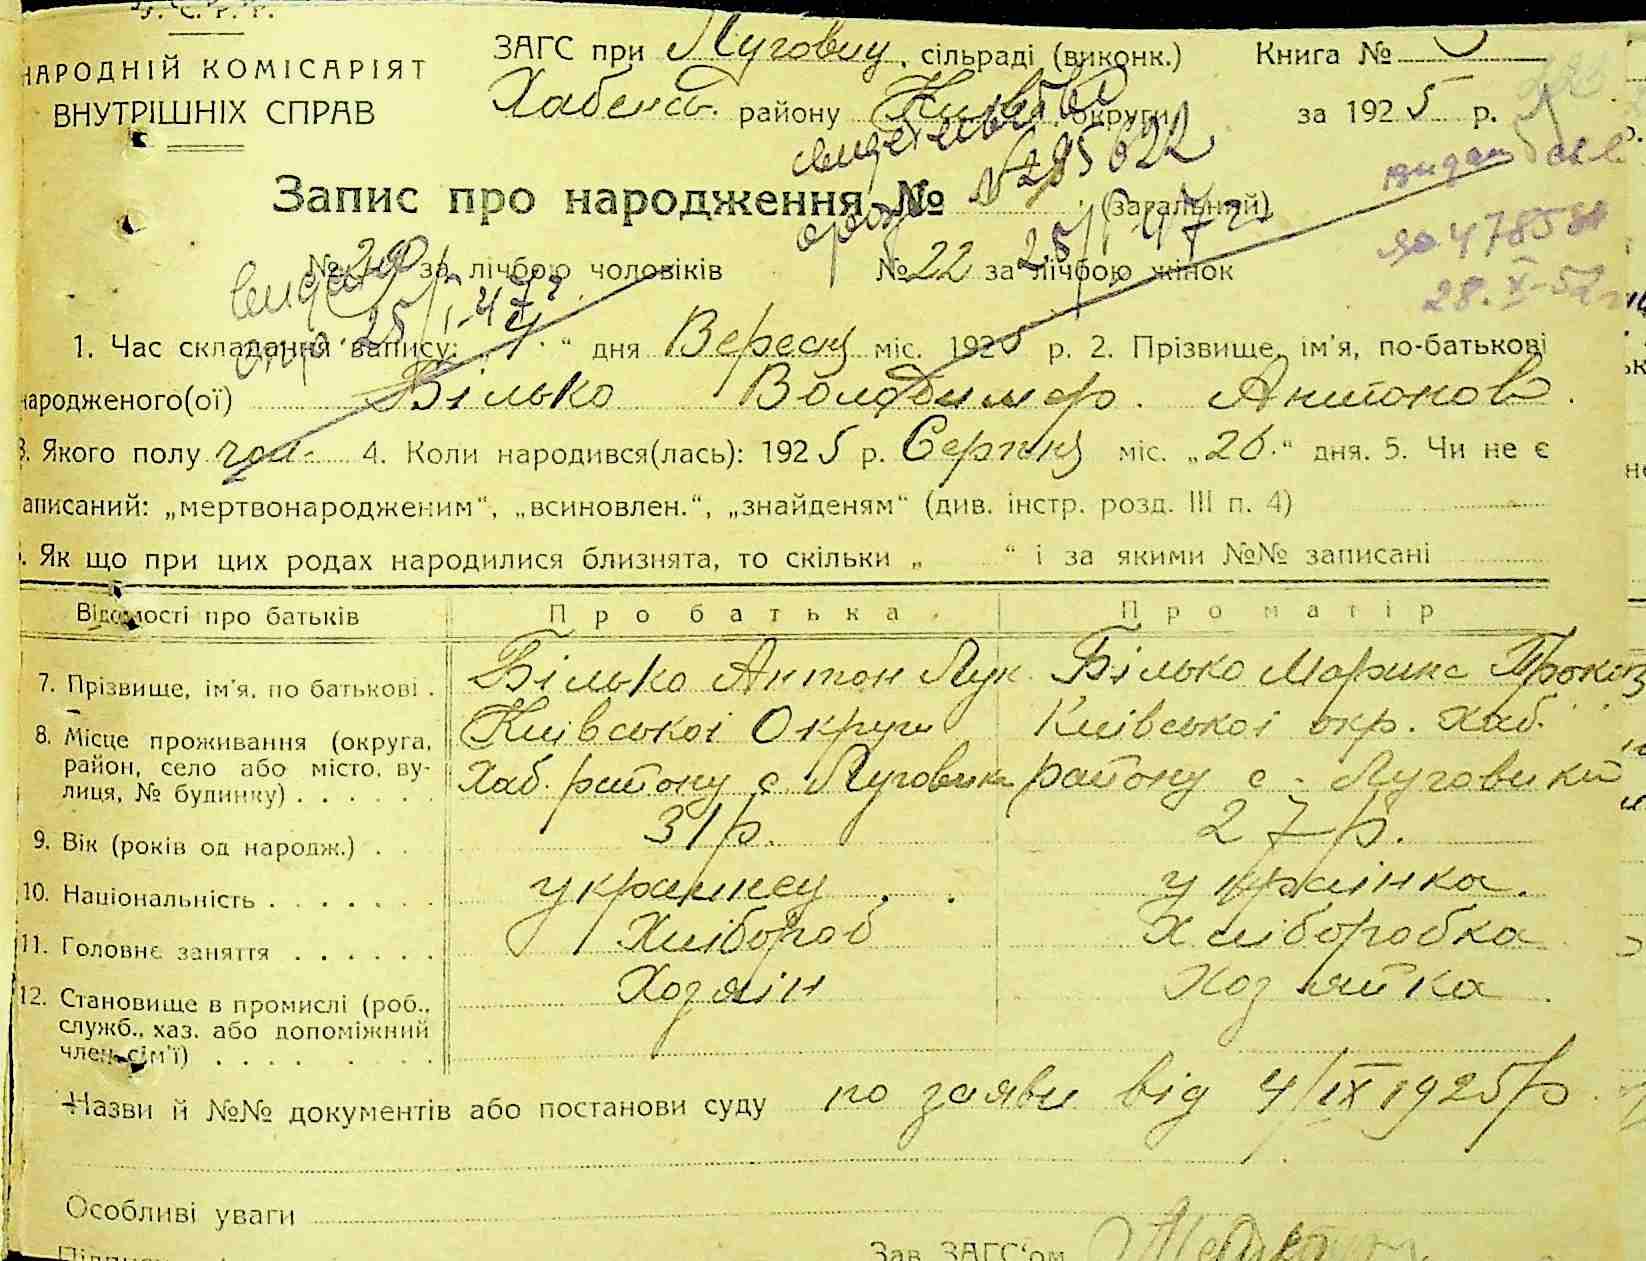 У. С. Р. Р.
НАРОДНІЙ КОМІСАРІЯТ
ВНУТРІШНІХ СПРАВ
ЗАГС при Луговиц. сільраді (виконк.) Книга №
Хабенсь. району округи за 1925 р.
№ 295622
Запис про народження № (загальний)
25/I-47 г
видан
478581
28. X-52 г
№ за лічбою чоловіків № 22 за лічбою жінок
25/I-47 г.
1. Час складання запису: „4“ дня Вересц міс. 1925 р. 2. Прізвище, ім'я, по-батькові
народженого(ої) Білько Володимер. Антонов.
3. Якого полу чол. 4. Коли народився(лась): 1925 р. Серпнц міс. „26.“ дня. 5. Чи не є
записаний: „мертвонародженим“, „всиновлен.“, „знайденям“ (див. інстр. розд. III п. 4)
6. Як що при цих родах народилися близнята, то скільки „ “ і за якими №№ записані
Відомості про батьків Про батька Про матір
7. Прізвище, ім'я, по батькові. Білько Антон Лук. Білько Марина Прокоп
8. Місце проживання (округа, район, село або місто, вулиця, № будинку) Київської Округи Хаб. району с Луговики Київської окр. Хаб. району с. Луговики
9. Вік (років од народж.) 31 р. 27 р.
10. Національність українец українка.
11. Головне заняття Хлібороб Хліборобка
12. Становище в промислі (роб., служб., хаз. або допоміжний член сім'ї) Хозяїн Хозяйка
Назви й №№ документів або постанови суду по заяви від 4/IX 1925 р
Особливі уваги
Зав. ЗАГС'ом